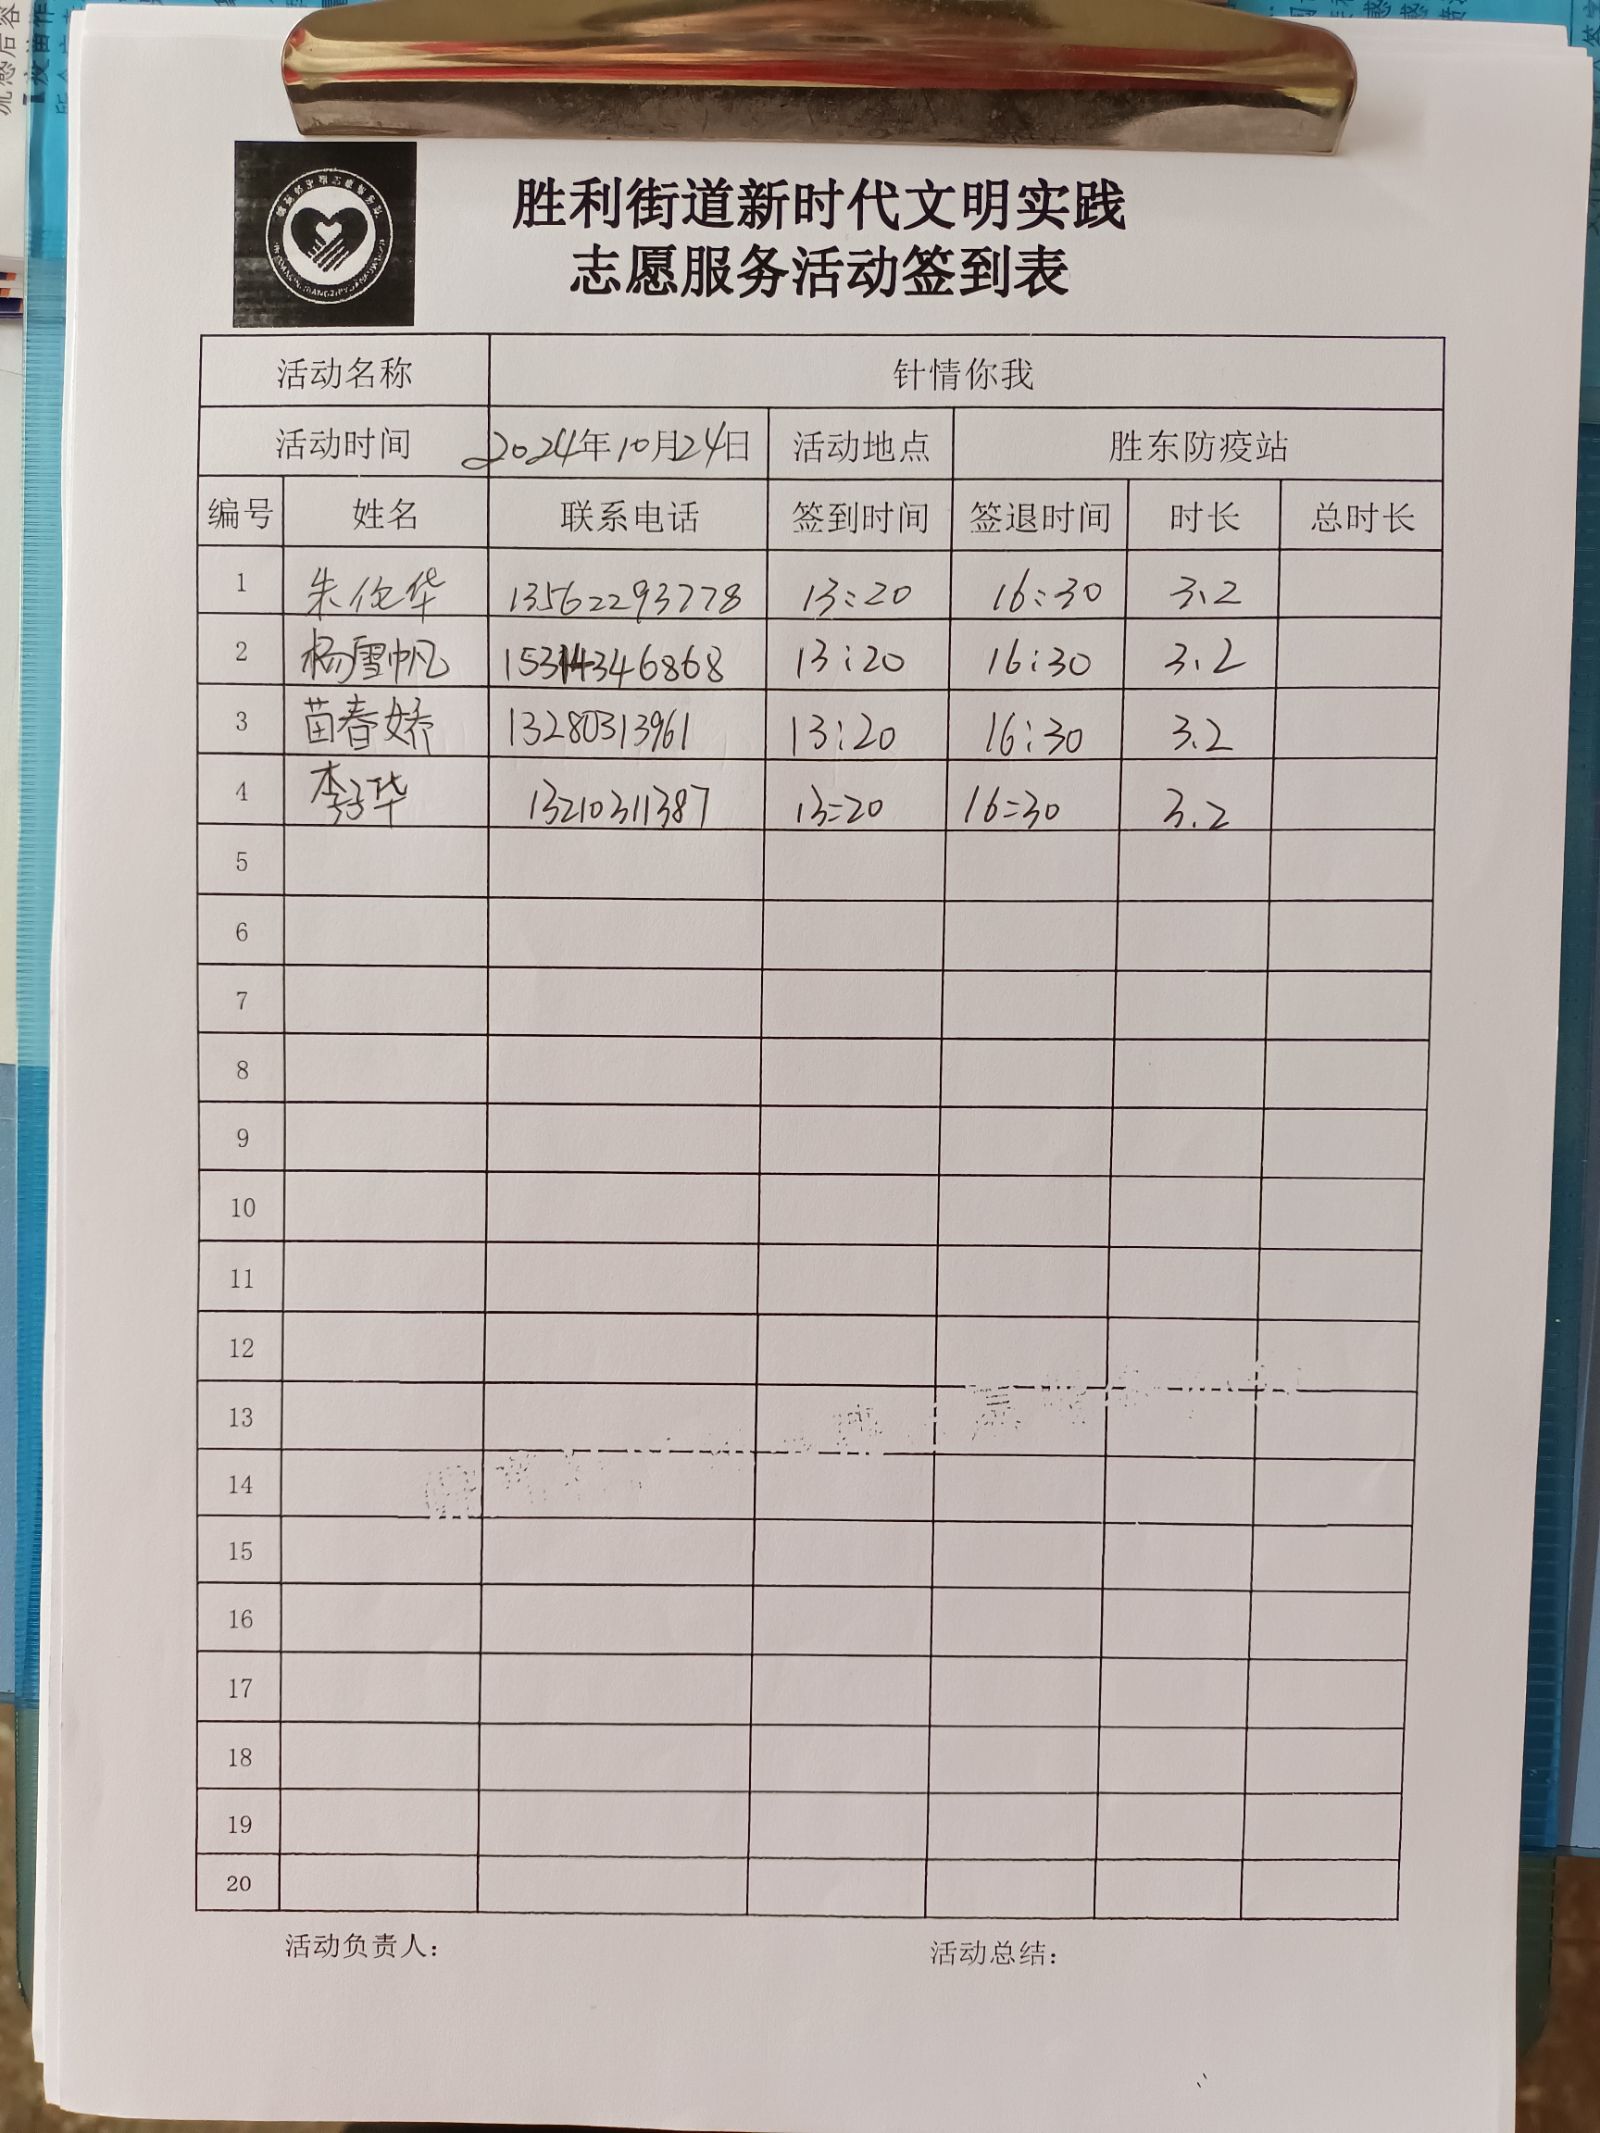 胜利街道新时代文明实践
志愿服务活动签到表
活动名称 针情你我
活动时间 2024年10月24日 活动地点 胜东防疫站
编号 姓名 联系电话 签到时间 签退时间 时长 总时长
1 朱伦华 13562293778 13:20 16:30 3.2
2 杨雪帆 15314346868 13:20 16:30 3.2
3 苗春娇 13280313961 13:20 16:30 3.2
4 李子华 13210311387 13:20 16:30 3.2
5
6
7
8
9
10
11
12
13
14
15
16
17
18
19
20
活动负责人： 活动总结：